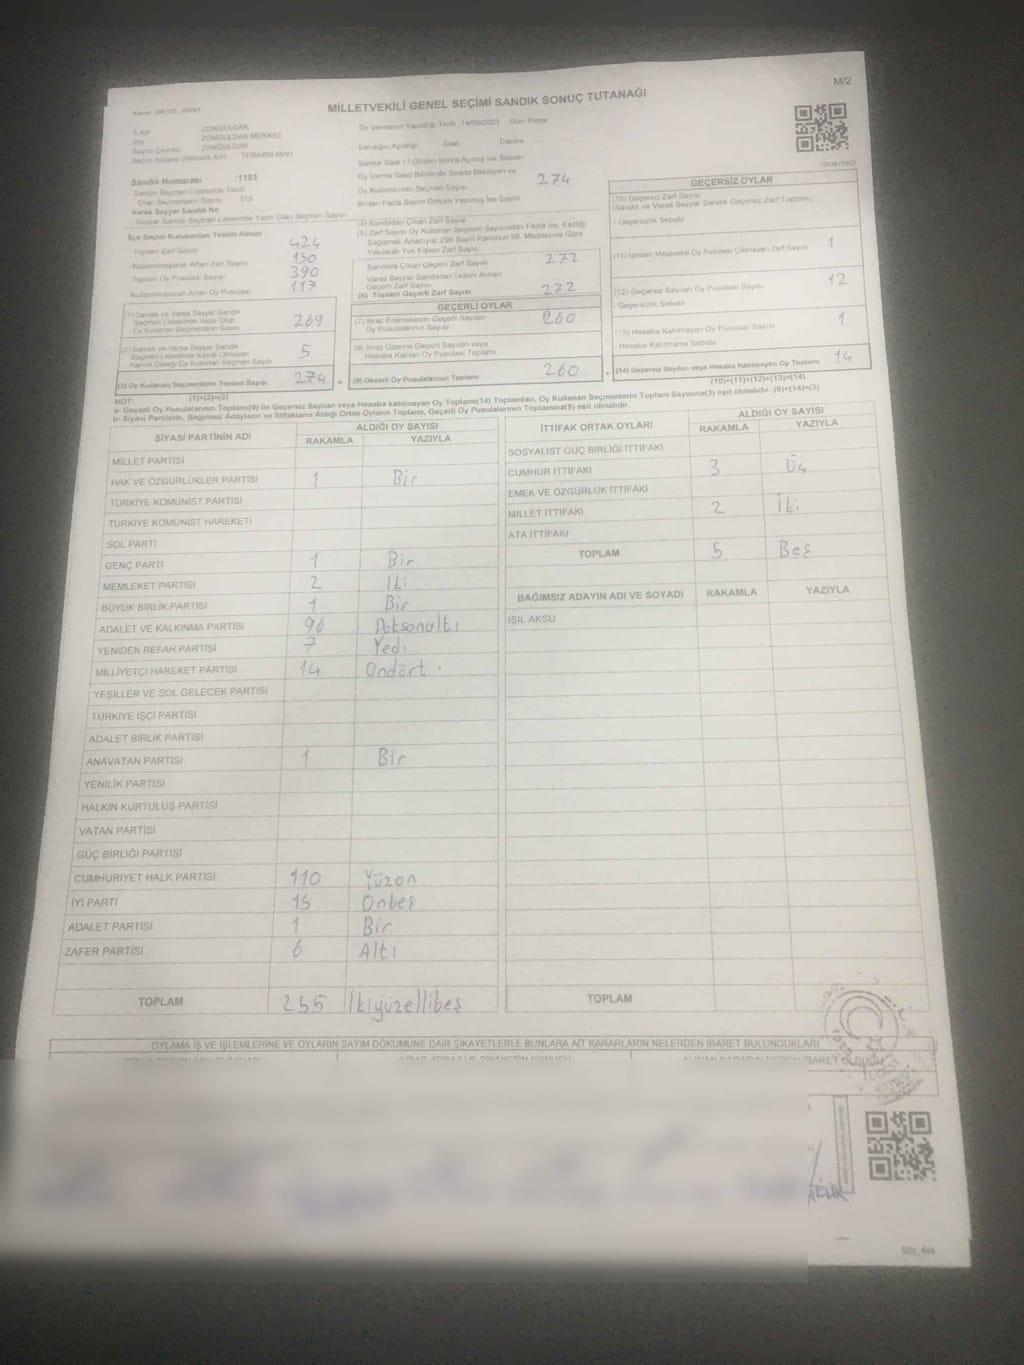 M/2
MİLLETVEKİLİ GENEL SEÇİMİ SANDIK SONUÇ TUTANAĞI
İl Adı ZONGULDAK
İlçe ZONGULDAK MERKEZ
Seçim Çevresi ZONGULDAK
Seçim Bölgesi (Mahalle Adı) TERAKKİ MAH
Oy Vermenin Yapıldığı Tarih : 14/05/2023 Gün: Pazar
Sandığın Açıldığı Saat Dakika
Sandık Saat 17:00'den Sonra Açılmış İse Sebebi
Oy Verme Saati Bitiminde Sırada Bekleyen ve
Oy Kullandırılan Seçmen Sayısı 274
Birden Fazla Sayım Döküm Yapılmış İse Sayısı
Sandık Numarası :1183
- Sandık Seçmen Listesinde Yazılı
Olan Seçmenlerin Sayısı 315
Varsa Seyyar Sandık No
- Seyyar Sandık Seçmen Listesinde Yazılı Olan Seçmen Sayısı
İlçe Seçim Kurulundan Teslim Alınan ;
- Toplam Zarf Sayısı 424
- Kullanılmayarak Artan Zarf Sayısı 150
Toplam Oy Pusulası Sayısı 390
Kullanılmayarak Artan Oy Pusulası 117
(1) Sandık ve Varsa Seyyar Sandık
Seçmen Listesinde Yazılı Olup
Oy Kullanan Seçmenlerin Sayısı 269
(2) Sandık ve Varsa Seyyar Sandık
Seçmen Listesinde Kayıtlı Olmayan
Kanun Gereği Oy Kullanan Seçmen Sayısı 5
(3) Oy Kullanan Seçmenlerin Toplam Sayısı 274
(1)+(2)=(3)
(4) Sandıktan Çıkan Zarf Sayısı
(5) Zarf Sayısı Oy Kullanan Seçmen Sayısından Fazla İse, Eşitliği
Sağlamak Amacıyla; 298 Sayılı Kanunun 98. Maddesine Göre
Yakılarak Yok Edilen Zarf Sayısı
Sandıkta Çıkan Geçerli Zarf Sayısı 272
Varsa Seyyar Sandıktan Teslim Alınan
Geçerli Zarf Sayısı
(6) Toplam Geçerli Zarf Sayısı 272
GEÇERLİ OYLAR
(7) İtiraz Edilmeksizin Geçerli Sayılan
Oy Pusulalarının Sayısı 260
(8) İtiraz Üzerine Geçerli Sayılan veya
Hesaba Katılan Oy Pusulası Toplamı
(9) Geçerli Oy Pusulalarının Toplamı 260
GEÇERSİZ OYLAR
(10) Geçersiz Zarf Sayısı
(Sandık ve Varsa Seyyar Sandık Geçersiz Zarf Toplamı)
- Geçersizlik Sebebi
(11) İçinden Milletvekili Oy Pusulası Çıkmayan Zarf Sayısı 1
(12) Geçersiz Sayılan Oy Pusulası Sayısı 12
- Geçersizlik Sebebi
(13) Hesaba Katılmayan Oy Pusulası Sayısı 1
- Hesaba Katılmama Sebebi
(14) Geçersiz Sayılan veya Hesaba Katılmayan Oy Toplamı 14
(10)+(11)+(12)+(13)=(14)
NOT:
a- Geçerli Oy Pusulaları Toplamı(9) ile Geçersiz Sayılan veya Hesaba katılmayan Oy Toplamı(14) Toplamları, Oy Kullanan Seçmenlerin Toplam Sayısına(3) eşit olmalıdır. (9)+(14)=(3)
b- Siyasi Partilerin, Bağımsız Adayların ve İttifakların Aldığı Ortak Oyların Toplamı, Geçerli Oy Pusulalarının Toplamına(9) eşit olmalıdır.
SİYASİ PARTİNİN ADI ALDIĞI OY SAYISI
RAKAMLA YAZIYLA
MİLLET PARTİSİ
HAK VE ÖZGÜRLÜKLER PARTİSİ 1 Bir
TÜRKİYE KOMÜNİST PARTİSİ
TÜRKİYE KOMÜNİST HAREKETİ
SOL PARTİ
GENÇ PARTİ 1 Bir
MEMLEKET PARTİSİ 2 İki
BÜYÜK BİRLİK PARTİSİ 1 Bir
ADALET VE KALKINMA PARTİSİ 96 Doksanaltı
YENİDEN REFAH PARTİSİ 7 Yedi
MİLLİYETÇİ HAREKET PARTİSİ 14 Ondört
YEŞİLLER VE SOL GELECEK PARTİSİ
TÜRKİYE İŞÇİ PARTİSİ
ADALET BİRLİK PARTİSİ
ANAVATAN PARTİSİ 1 Bir
YENİLİK PARTİSİ
HALKIN KURTULUŞ PARTİSİ
VATAN PARTİSİ
GÜÇ BİRLİĞİ PARTİSİ
CUMHURİYET HALK PARTİSİ 110 Yüzon
İYİ PARTİ 15 Onbeş
ADALET PARTİSİ 1 Bir
ZAFER PARTİSİ 6 Altı
TOPLAM 255 İkiyüzellibeş
İTTİFAK ORTAK OYLARI ALDIĞI OY SAYISI
RAKAMLA YAZIYLA
SOSYALİST GÜÇ BİRLİĞİ İTTİFAKI
CUMHUR İTTİFAKI 3 Üç
EMEK VE ÖZGÜRLÜK İTTİFAKI
MİLLET İTTİFAKI 2 İki
ATA İTTİFAKI
TOPLAM 5 Beş
BAĞIMSIZ ADAYIN ADI VE SOYADI RAKAMLA YAZIYLA
IŞIL AKSU
TOPLAM
OYLAMA İŞ VE İŞLEMLERİNE VE OYLARIN SAYIM DÖKÜMÜNE DAİR ŞİKAYETLERLE BUNLARA AİT KARARLARIN NELERDEN İBARET BULUNDUKLARI